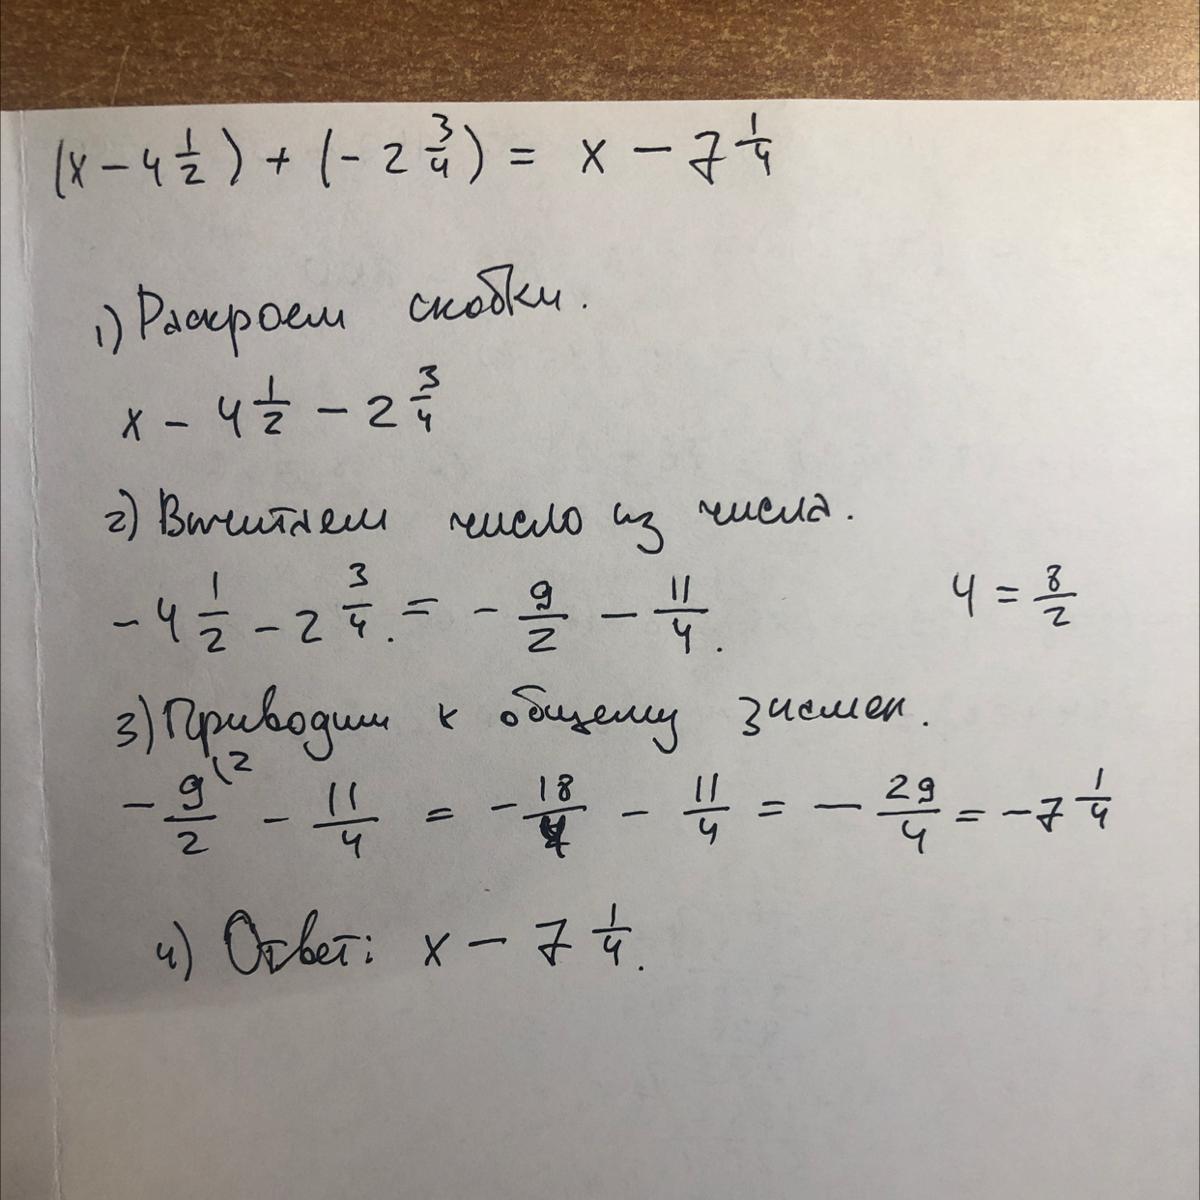 (x - 4 1/2) + (- 2 3/4) = x - 7 1/4
1) Раскроем скобки.
x - 4 1/2 - 2 3/4
2) Вычитаем число из числа.
- 4 1/2 - 2 3/4. = - 9/2 - 11/4. 4 = 8/2
3) Приводим к общему знамен.
- 9(2/2 - 11/4 = - 18/4 - 11/4 = - 29/4 = - 7 1/4
4) Ответ: x - 7 1/4.